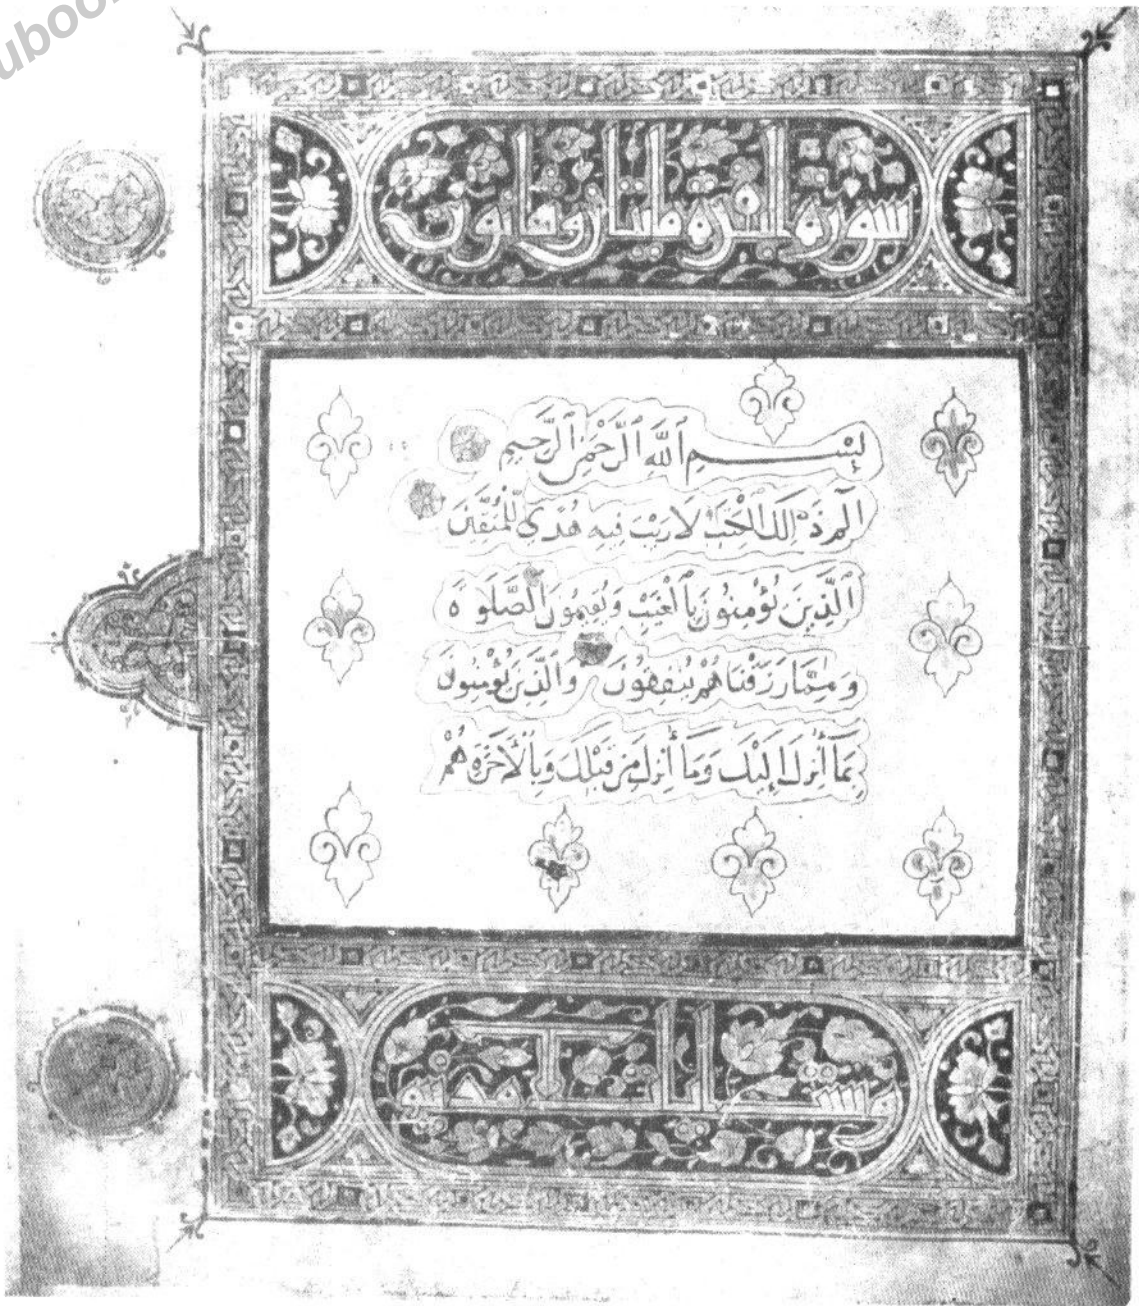 سورة البقرة مايتان وثمانون
بِسْمِ ٱللَّهِ ٱلرَّحْمَٰنِ ٱلرَّحِيمِ
الٓمٓ ذَٰلِكَ ٱلْكِتَٰبُ لَا رَيْبَ فِيهِ هُدًى لِّلْمُتَّقِينَ
ٱلَّذِينَ يُؤْمِنُونَ بِٱلْغَيْبِ وَيُقِيمُونَ ٱلصَّلَوٰةَ
وَمِمَّا رَزَقْنَاهُمْ يُنفِقُونَ وَٱلَّذِينَ يُؤْمِنُونَ
بِمَآ أُنزِلَ إِلَيْكَ وَمَآ أُنزِلَ مِن قَبْلِكَ وَبِٱلْأَخِرَةِ هُمْ